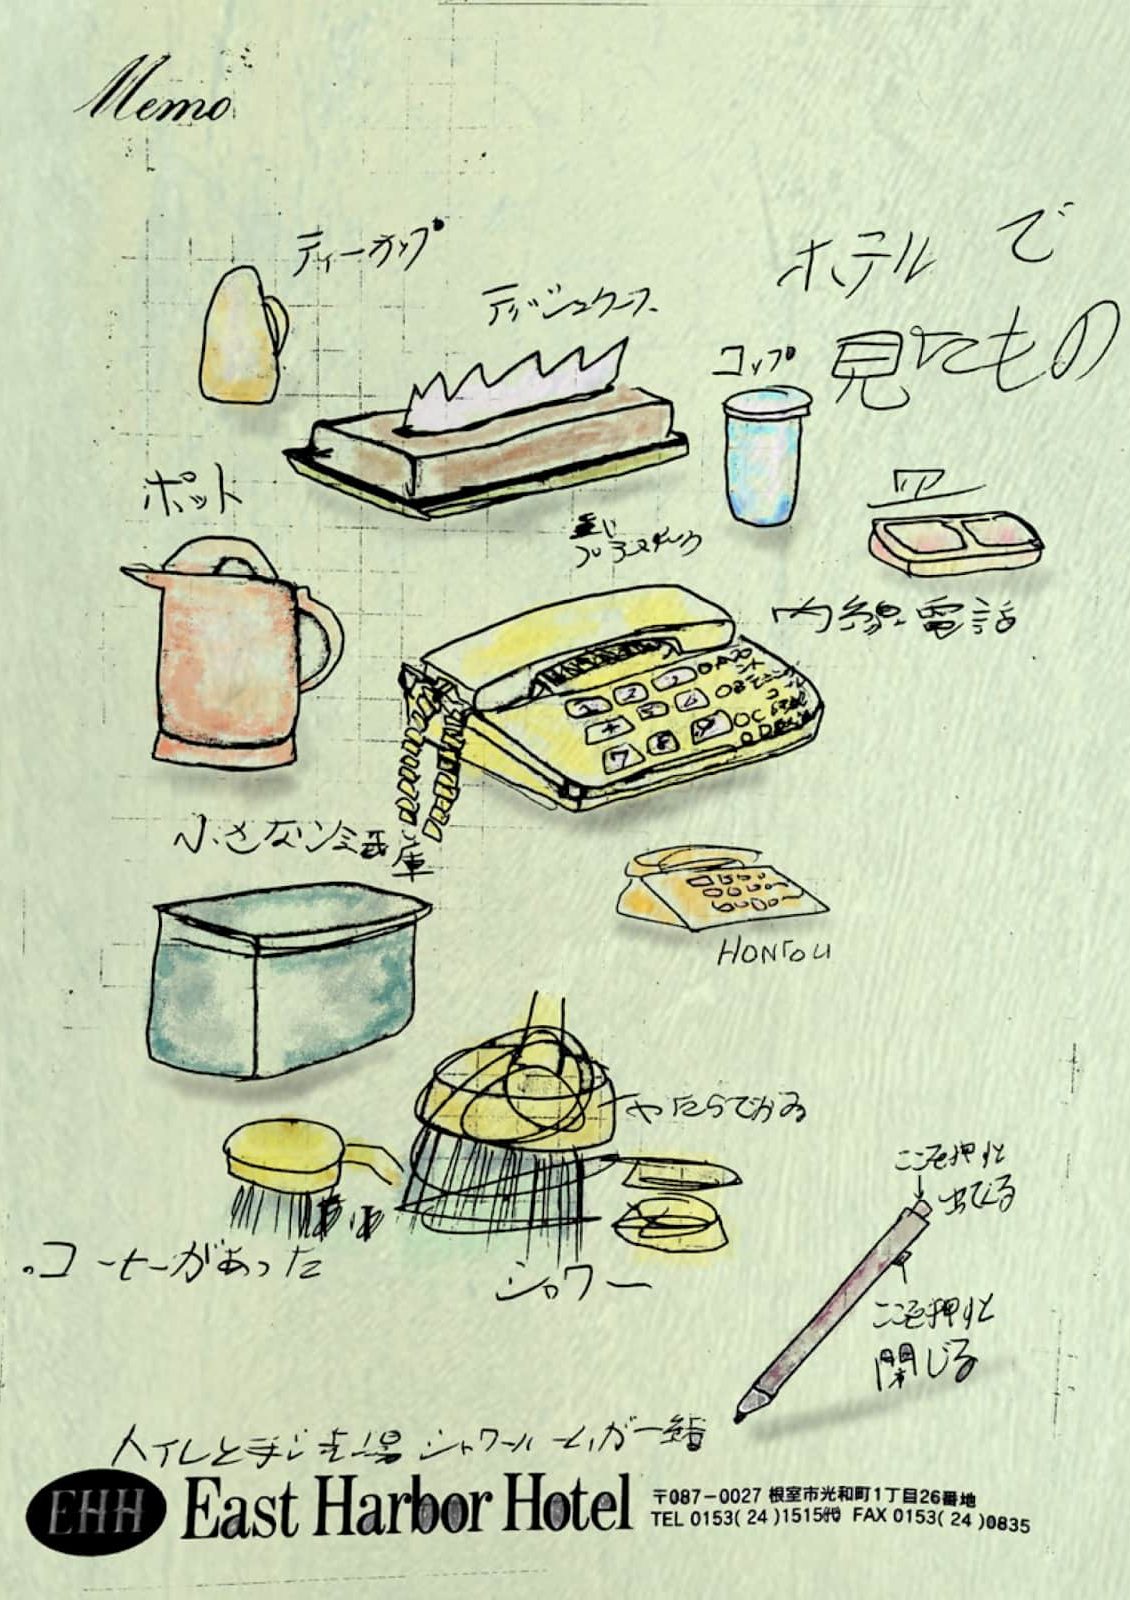 Memo
ホテルで
見たもの
ティーカップ
ティッシュケース
コップ
皿
ポット
プラスチック
内線電話
1 2 3
7 8 9
小さな冷蔵庫
HONTOU
やたらでかい
コーヒーがあった
シャワー
ここを押すと
出てくる
ここを押すと
閉じる
トイレと手洗場 シャワールームが一緒
EHH East Harbor Hotel
〒087-0027 根室市光和町1丁目26番地
TEL 0153(24)1515代 FAX 0153(24)0835